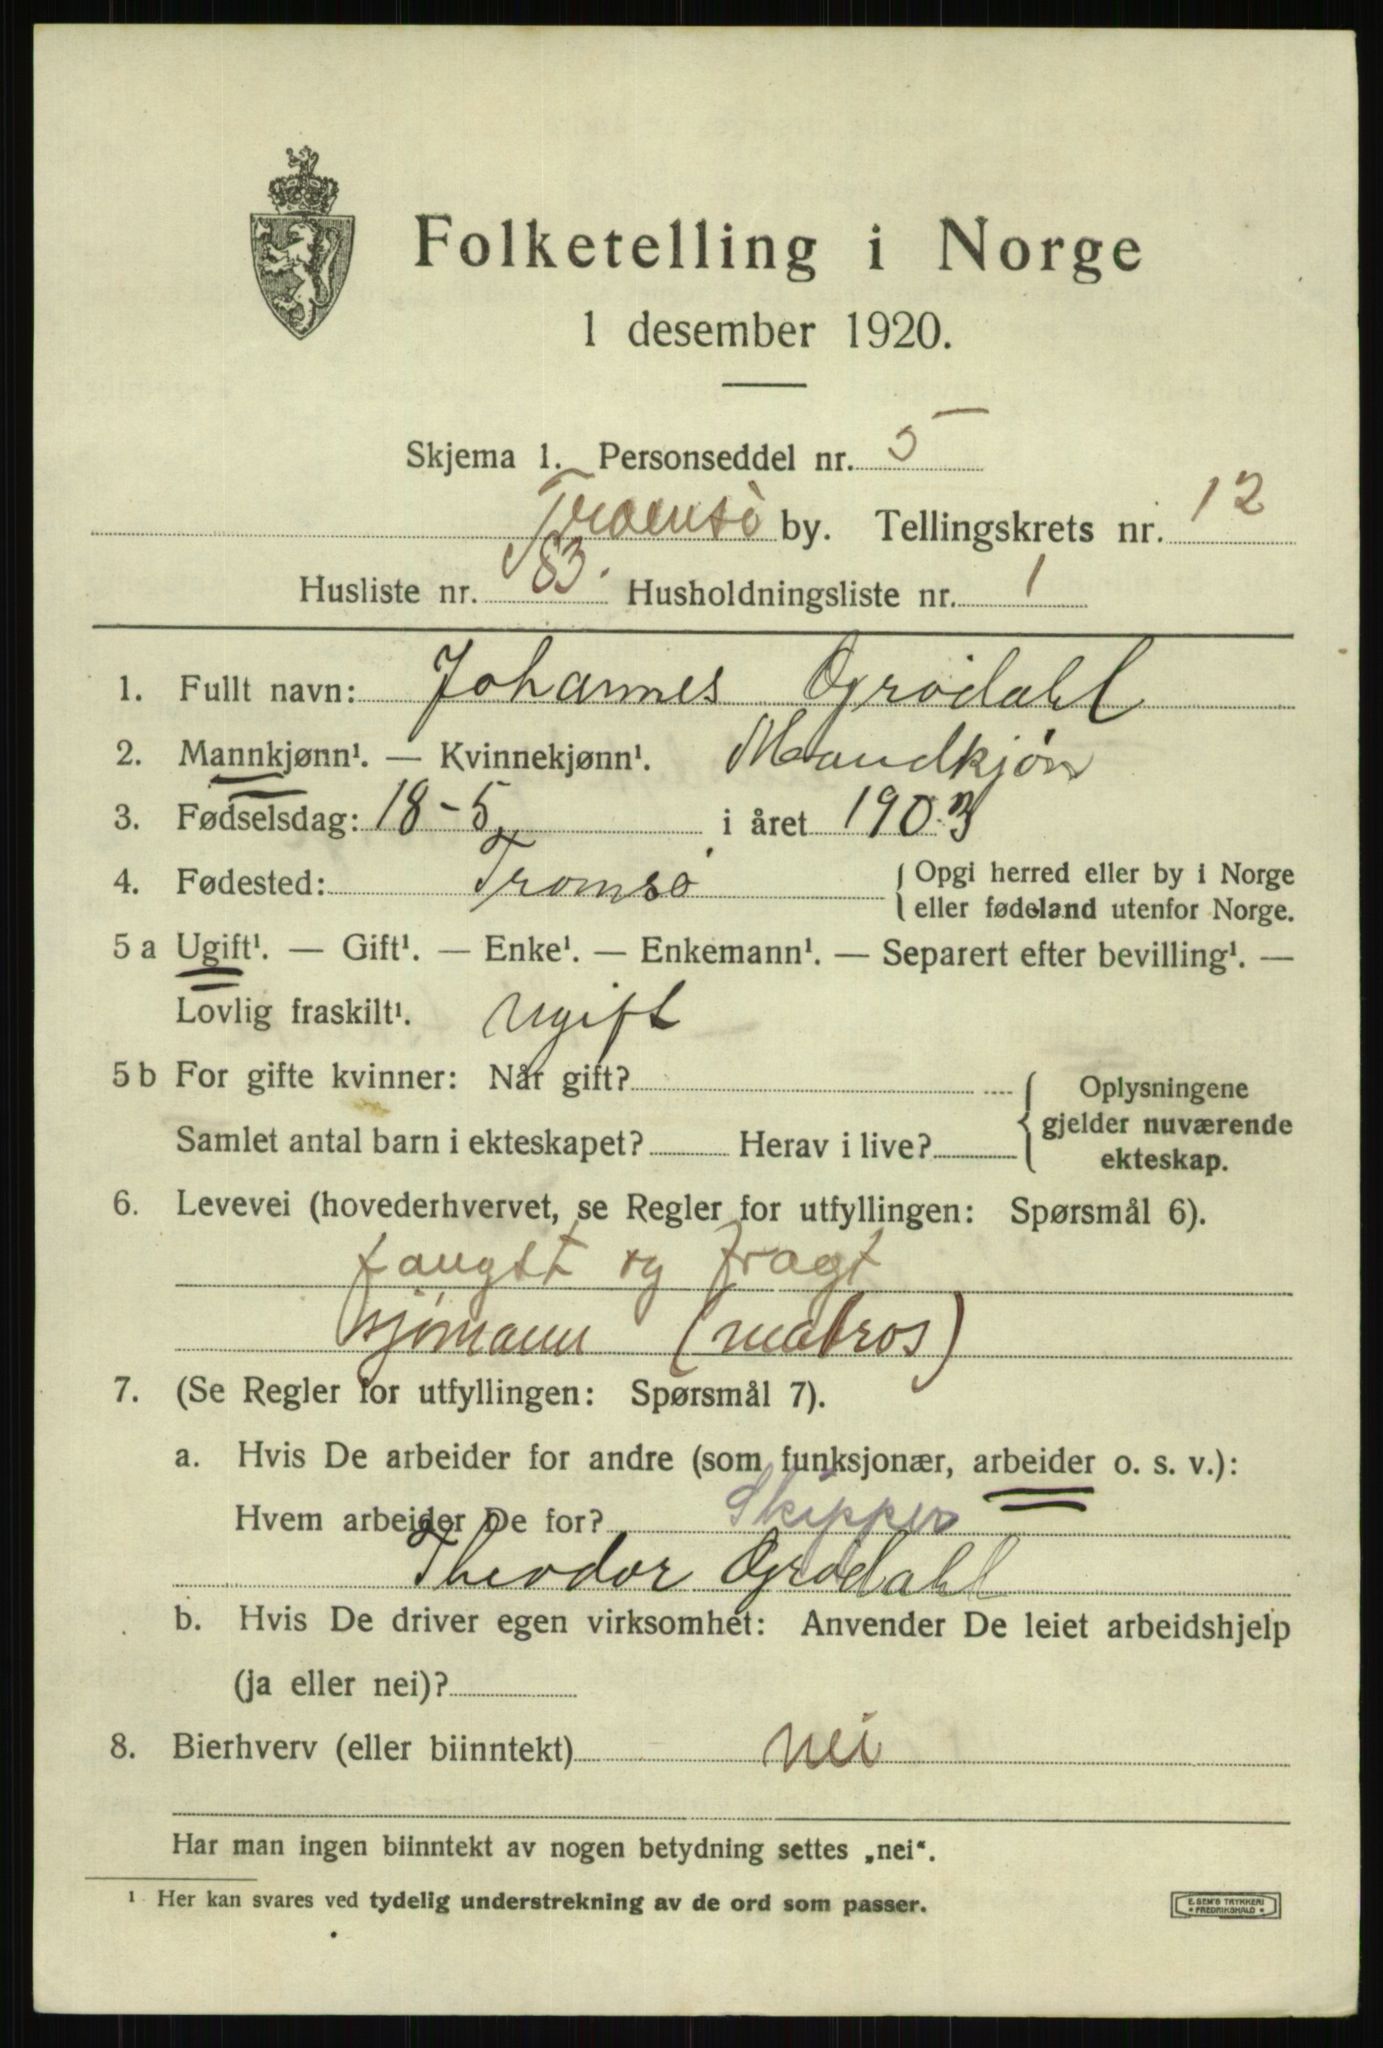 Folketelling i Norge
1 desember 1920.
Skjema 1. Personseddel nr. 5
Tromsö by. Tellingskrets nr. 12
Husliste nr. 83. Husholdningsliste nr. 1
1. Fullt navn: Johannes Ogrødahl
2. Mannkjønn¹. — Kvinnekjønn¹. Mandkjøn
3. Fødselsdag: 18-5 i året 1903
4. Fødested: Tromsø { Opgi herred eller by i Norge
eller fødeland utenfor Norge.
5 a Ugift¹. — Gift¹. — Enke¹. — Enkemann¹. — Separert efter bevilling¹. —
Lovlig fraskilt¹. Ugift
5 b For gifte kvinner: Når gift? { Oplysningene
gjelder nuværende
Samlet antal barn i ekteskapet? Herav i live?
ekteskap.
6. Levevei (hovederhvervet, se Regler for utfyllingen: Spørsmål 6).
fangst og fragt
sjømann (matros)
7. (Se Regler for utfyllingen: Spørsmål 7).
a. Hvis De arbeider for andre (som funksjonær, arbeider o. s. v.):
Hvem arbeider De for? Skipper
Theodor Ogrødahl
b. Hvis De driver egen virksomhet: Anvender De leiet arbeidshjelp
(ja eller nei)?
8. Bierhverv (eller biinntekt) nei
Har man ingen biinntekt av nogen betydning settes „nei“.
¹ Her kan svares ved tydelig understrekning av de ord som passer.
E. SEM'S TRYKKERI
FREDRIKSHALD